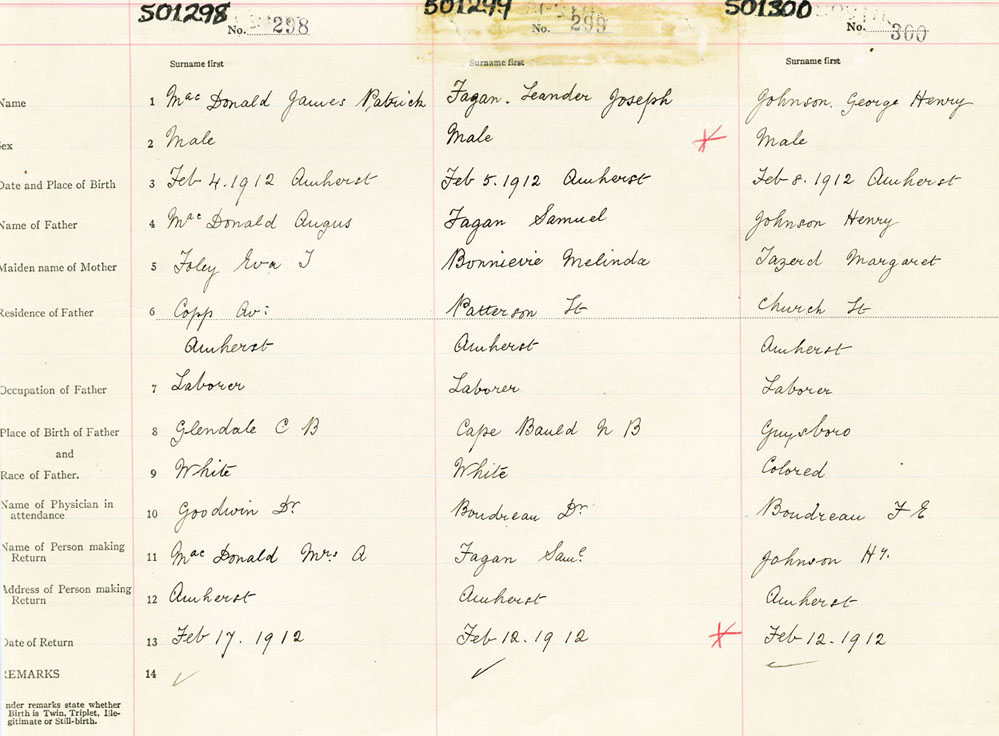 501298 501299 501300
No. 298 No. 299 No. 300
Surname first Surname first Surname first
Name 1 Mac Donald James Patrick Fagan. Leander Joseph Johnson. George Henry
Sex 2 Male Male Male
Date and Place of Birth 3 Feb 4. 1912 Amherst Feb 5. 1912 Amherst Feb 8. 1912 Amherst
Name of Father 4 Mac Donald Angus Fagan Samuel Johnson Henry
Maiden name of Mother 5 Foley Eva J Bonnievie Melinda Margaret
Residence of Father 6 Copp Av: Patterson St Church St
Amherst Amherst Amherst
Occupation of Father 7 Laborer Laborer Laborer
Place of Birth of Father 8 Glendale C B Cape Bauld N B Guysboro
and
Race of Father. 9 White White Colored
Name of Physician in
attendance 10 Goodwin Dr Boudreau Dr Boudreau F E
Name of Person making
Return 11 Mac Donald Mrs A Fagan Saml Johnson Hy.
Address of Person making
Return 12 Amherst Amherst Amherst
Date of Return 13 Feb 17. 1912 Feb 12. 1912 Feb 12. 1912
REMARKS 14
Under remarks state whether
Birth is Twin, Triplet, Ille-
gitimate or Still-birth.